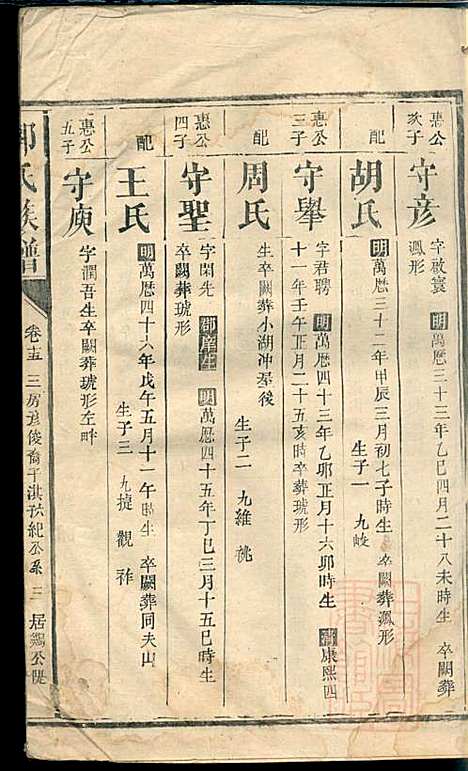 惠公次子
守彦
字啟寰 明萬曆三十三年乙巳四月二十八未時生 卒闕葬
鳯形
配
胡氏
明萬曆三十二年甲辰三月初七子時生 卒闕葬鳯形
生子一 九岐
惠公三子
守舉
字君聘 明萬曆四十三年乙卯正月十六卯時生 清康熙四
十一年壬午正月二十五亥時卒葬琥形
配
周氏
生卒闕葬小湖冲屋後
生子二 九維 祧
惠公四子
守聖
字閑先 郡庠生 明萬曆四十五年丁巳三月十五巳時生
卒闕葬琥形
配
王氏
明萬曆四十六年戊午五月十一午時生 卒闕葬同夫山
生子三 九捷 觀 祚
惠公五子
守庾
字潤吾生卒闕葬琥形左畔
氏族譜 卷十五 三房彦俊裔千淇 紀公系 三 居 公